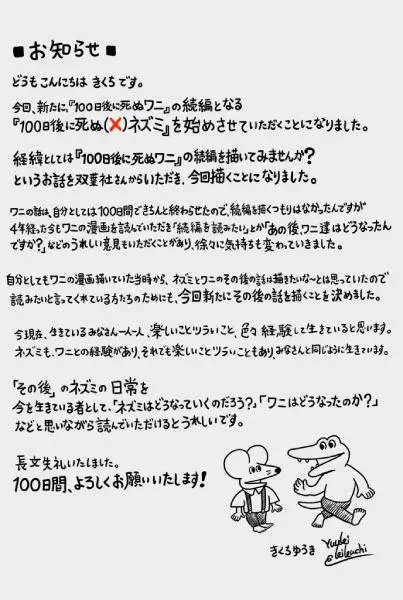 ■お知らせ■
どうもこんにちは きくちです。
今回、新たに、『100日後に死ぬワニ』の続編となる
『100日後に死ぬ(❌)ネズミ』を始めさせていただくことになりました。
経緯としては『100日後に死ぬワニ』の続編を描いてみませんか?
というお話を双葉社さんからいただき、今回描くことになりました。
ワニの話は、自分としては100日間できちんと終わらせたので、続編を描くつもりはなかったんですが
4年経った今もワニの漫画を読んでいただき「続編を読みたい」とか「あの後、ワニ達はどうなったん
ですか?」などのうれしい意見もいただくことがあり、徐々に気持ちも変わっていきました。
自分としてもワニの漫画描いていた当時から、ネズミとワニのその後の話は描きたいな〜とは思っていたので
読みたいと言ってくれている方たちのためにも、今回新たにその後の話を描くことを決めました。
今現在、生きているみなさん一人一人、楽しいことツラいこと、色々経験して生きていると思います。
ネズミも、ワニとの経験があり、それでも楽しいことツラいこともあり、みなさんと同じように生きています。
「その後」のネズミの日常を
今を生きている者として、「ネズミはどうなっていくのだろう?」「ワニはどうなったのか?」
などと思いながら読んでいただけるとうれしいです。
長文失礼いたしました。
100日間、よろしくお願いいたします!
きくちゆうき Yuuki Kikuchi